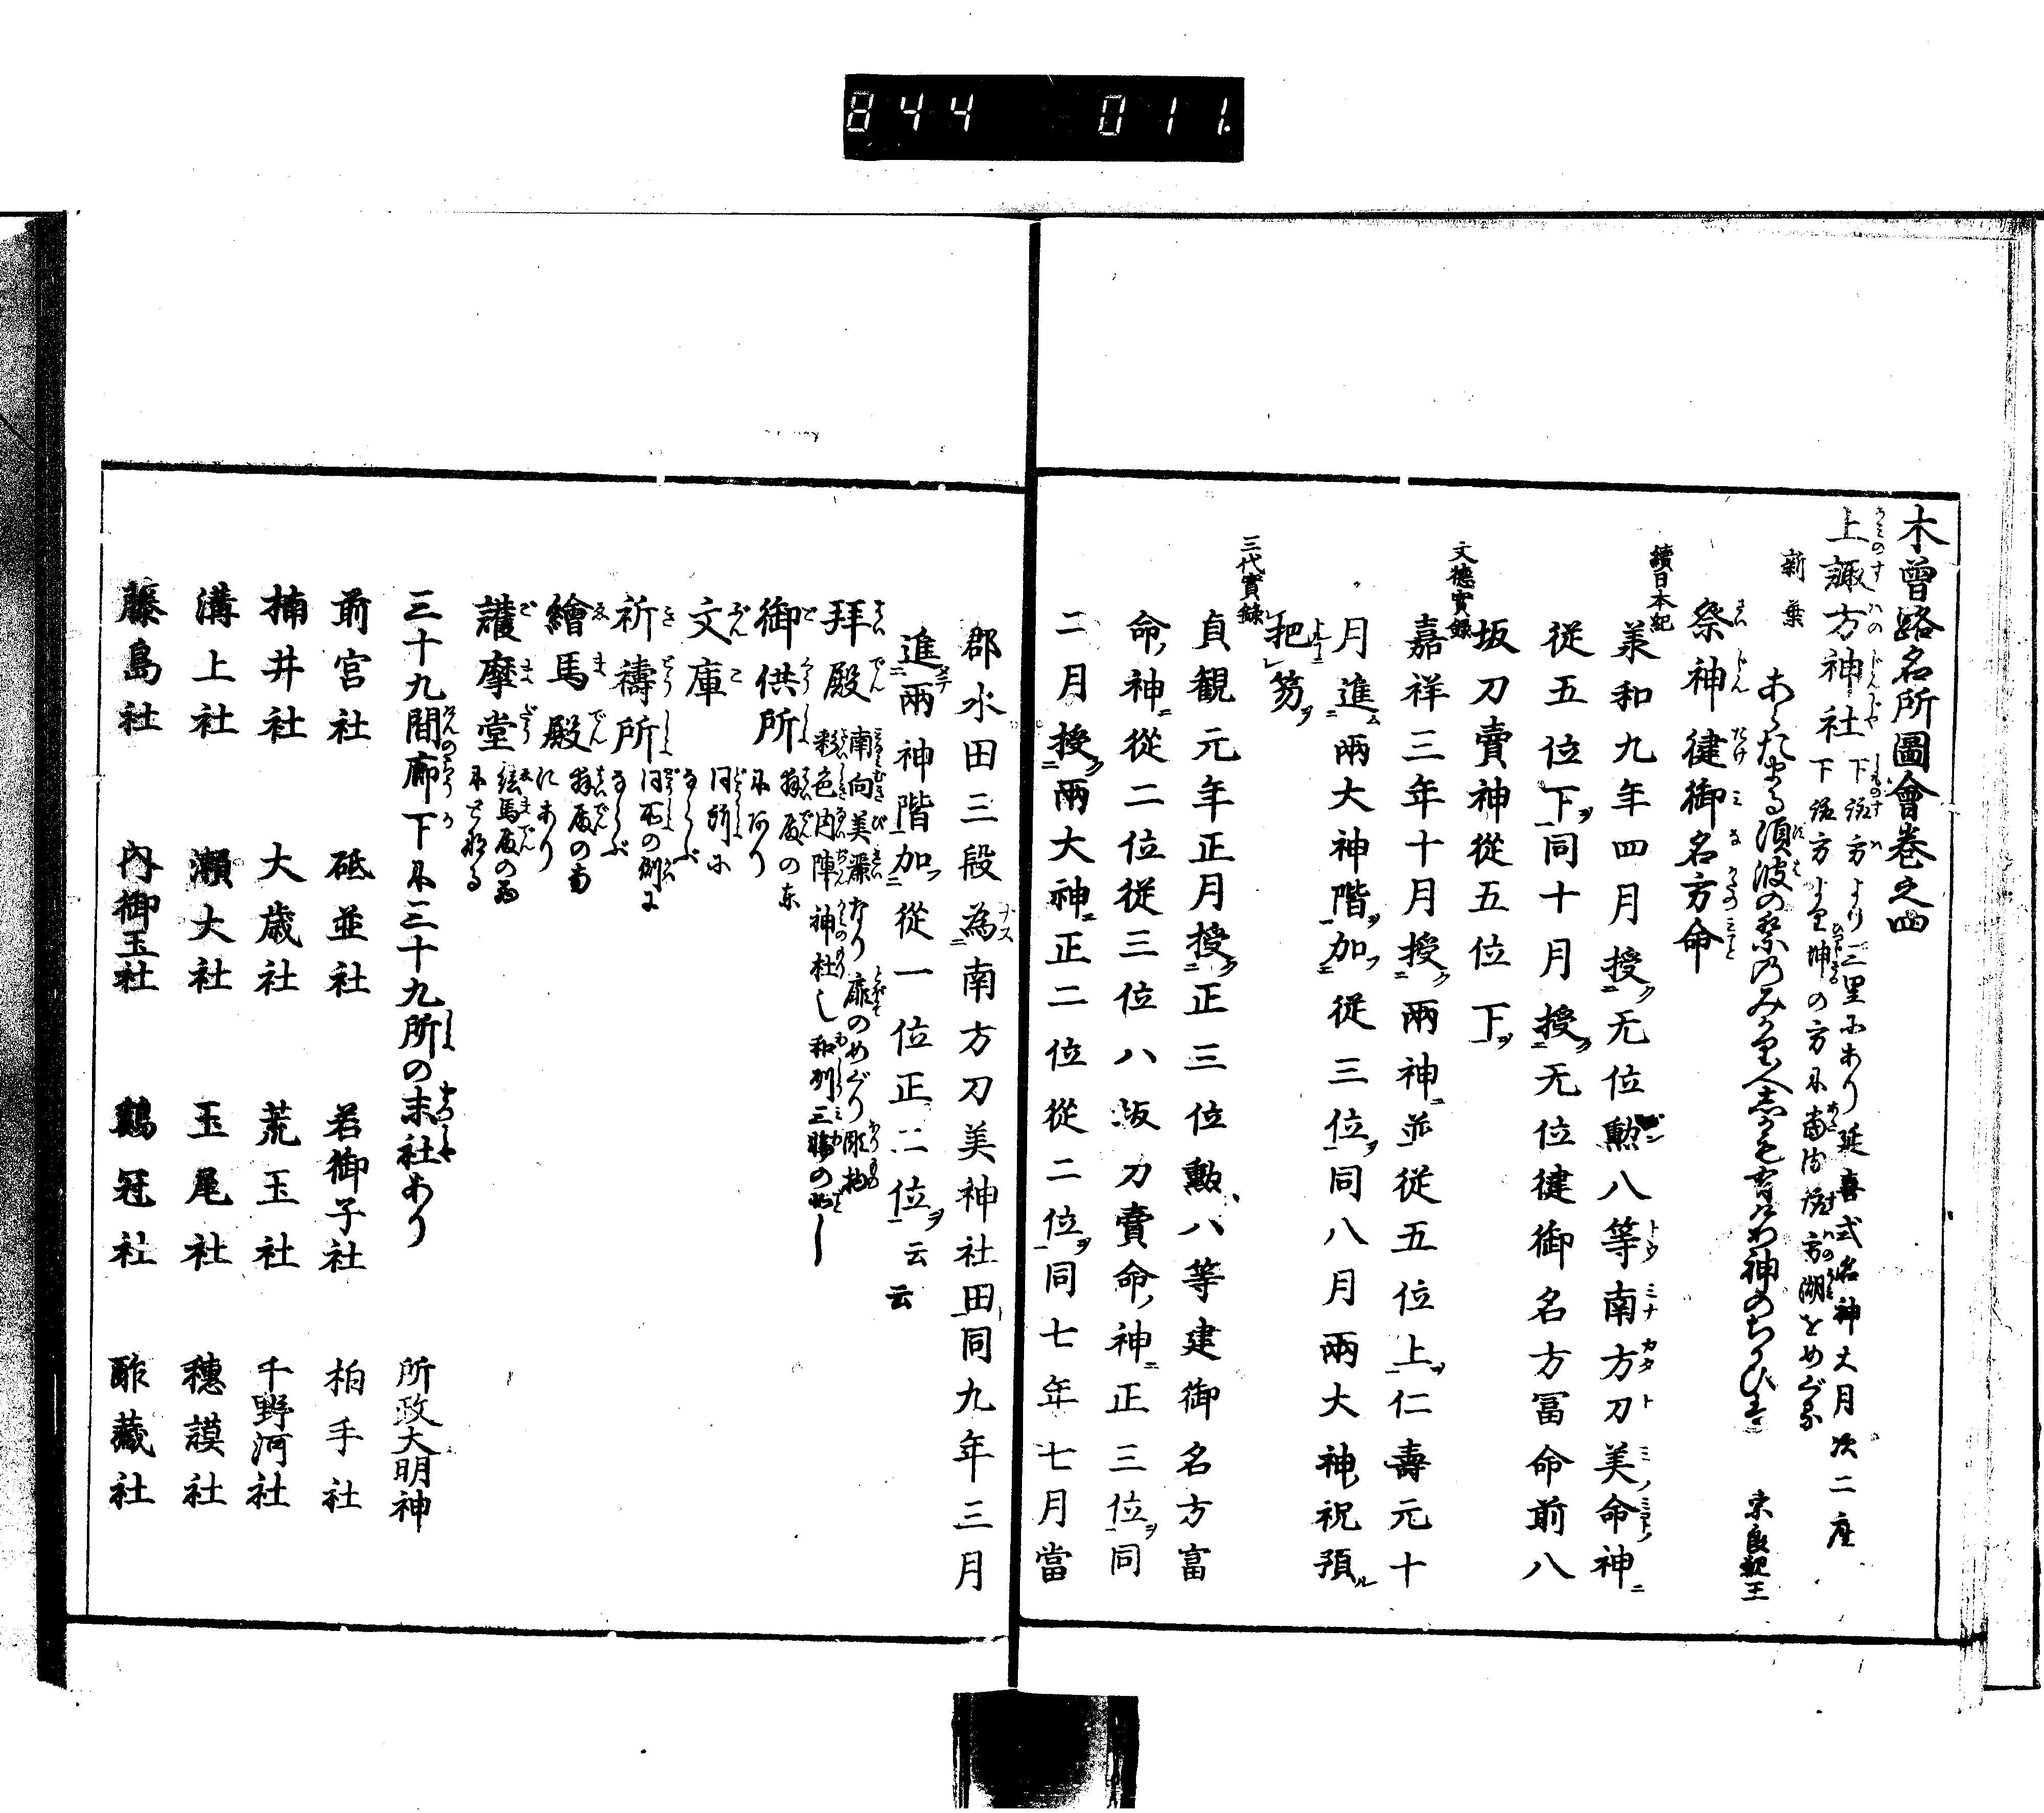 844 011
木曾路名所圖會巻之四
上諏方神社
下諏方より三里にあり延喜式名神大月次二座
下諏方より坤の方に當る諏方湖をめぐる
新葉
あらたまる須波の祭のみ
宗良親王
祭神健御名方命
續日本紀
羕和九年四月授无位勲八等南方刀美命神
従五位下同十月授无位健御名方冨命前八
坂刀賣神從五位下
文德實録
嘉祥三年十月授兩神並従五位上仁壽元十
月進兩大神階加従三位同八月兩大神祝預
把笏
三代實録
貞観元年正月授正三位勲八等建御名方富
命神從二位従三位八坂刀賣命神正三位同
二月授兩大神正二位從二位同七年七月當
郡水田三段為南方刀美神社田同九年三月
進兩神階加從一位正二位云云
拜殿
南向美麗なり扉のめぐり彫物
彩色内陣神杜し和州三輪の如し
御供所
拜殿の東
にあり
文庫
同所に
ならぶ
祈禱所
同所の側に
ならぶ
繪馬殿
拜殿の南
にあり
護摩堂
絵馬殿の西
にとなる
三十九間廊下に三十九所の末社あり
所政大明神
前宮社 砥並社 若御子社 柏手社
楠井社 大歳社 荒玉社 千野河社
溝上社 瀬大社 玉尾社 穗謨社
藤島社 内御玉社 鷄冠社 酢藏社